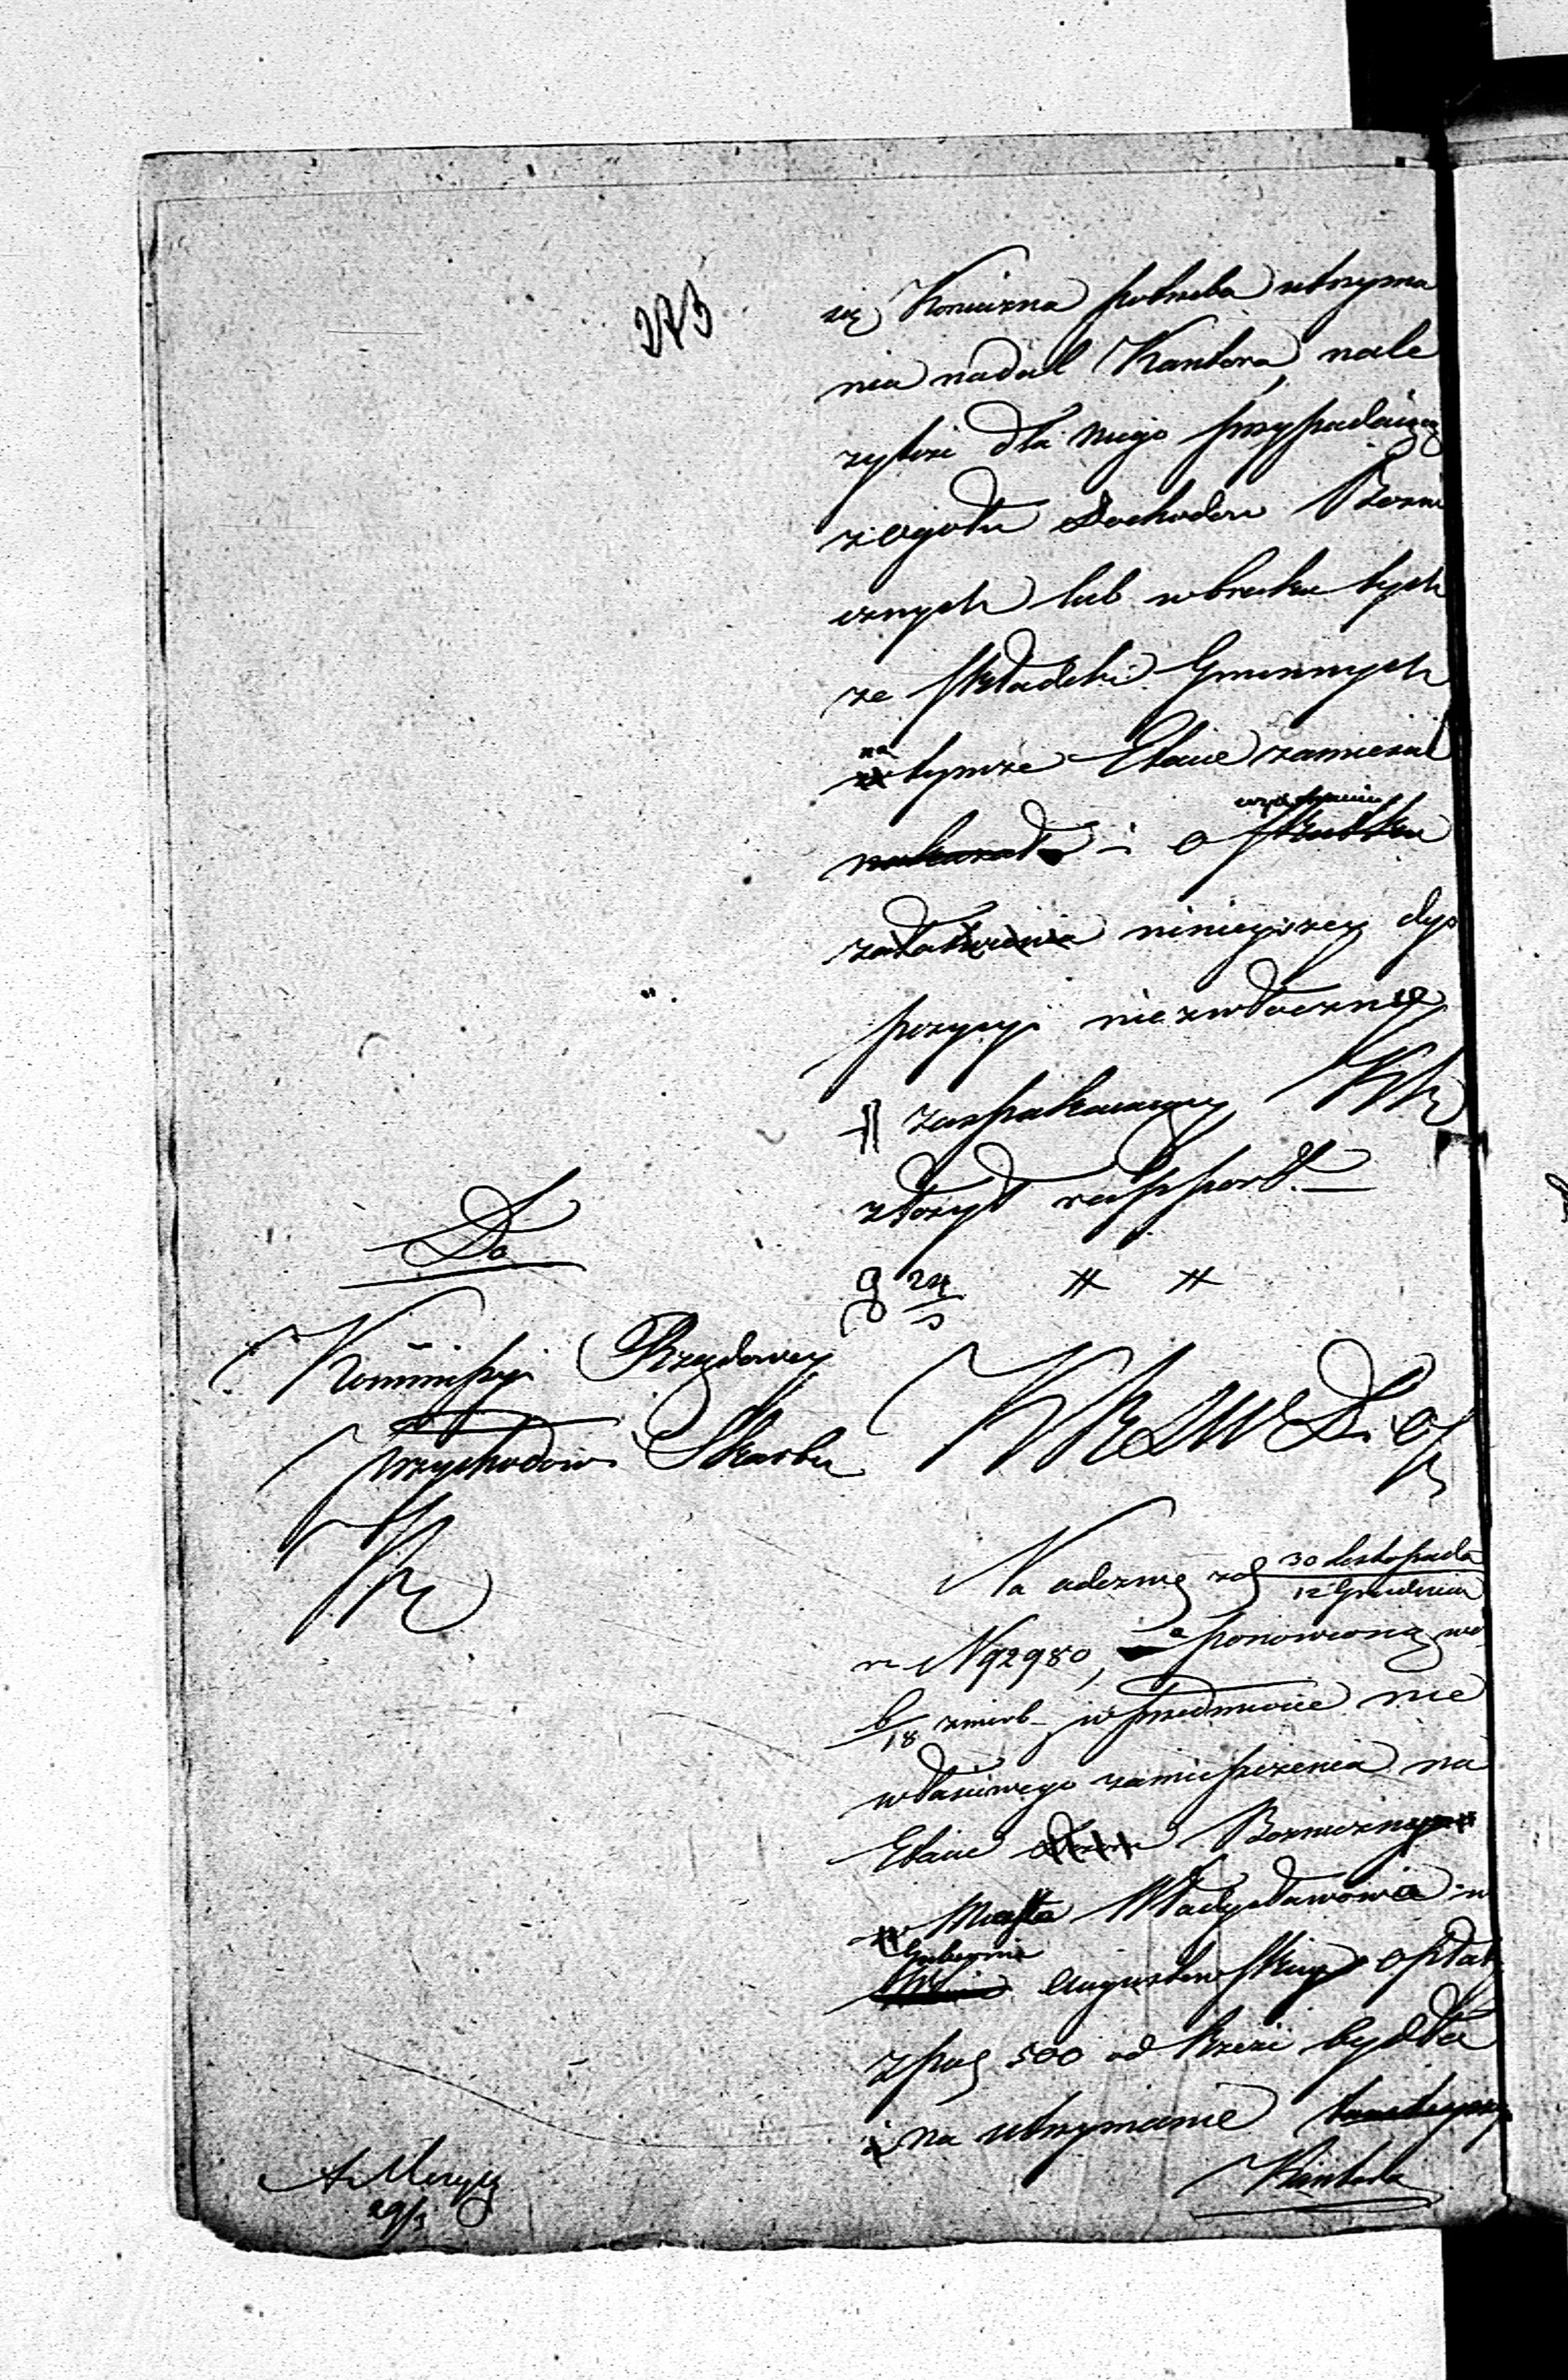 273
się Konieczna potrzeba utrzyma
nia nadal Kantora, nale
żytość dla niego przypadaiącą
z ogółu dochodów Bożni
cznych lub w braku tych
ze składki Gminnych
na tymże Etacie zamieścił
nakazał i o uzupełnieniu skutku
załatwienia ninieyszey dys
pozycyi niezwłocznie
zaspakaiaiący
złożył rapport.—
Do
g 24/5 # #
Kommissyi Rządowey
Przychodów i Skarbu
KRSWDiOP
Na odezwę z d 30 Listopada
12 Grudnia
r N 92980, a ponowioną w d
6/18 z m i r b w przedmiocie nie
właściwego zamieszczenia na
Etacie Bożnicznym
w Miasta Władysławowie w
Gubernii Augustowskiey opłaty
złp 500 od Rzezi bydła
i na utrzymanie tamteyszego
Kantora
A Meryz
29/3